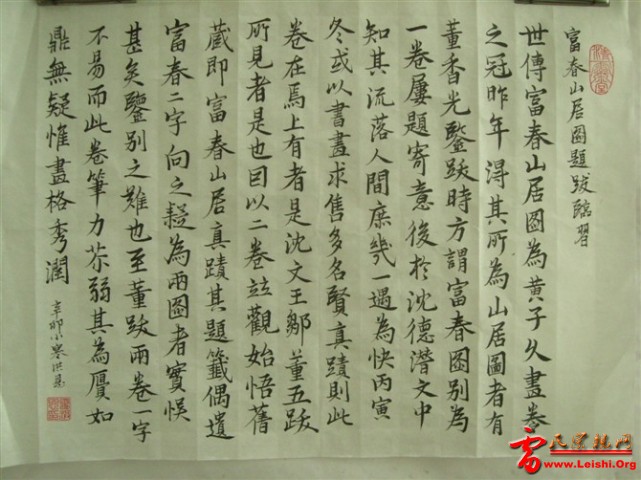 富春山居圖題跋臨習
世傳富春山居圖為黃子久畫卷
之冠昨年得其所為山居圖者有
董香光鑒跋時方謂富春圖別為
一卷屢題寄意後於沈德潛文中
知其流落人間庶幾一遇為快丙寅
冬或以書畫求售多名賢真蹟則此
卷在焉上有者是沈文王鄒董五跋
所見者是也因以二卷竝觀始悟舊
藏即富春山居真蹟其題籤偶遺
富春二字向之疑為兩圖者實悞
甚矣鑒別之難也至董跋兩卷一字
不易而此卷筆力苶弱其為贗如
鼎無疑惟畫格秀潤 辛卯小寒
www.Leishi.Org